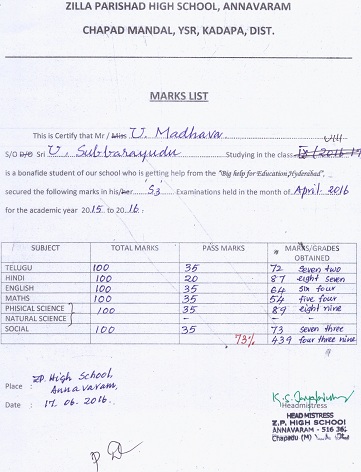 ZILLA PARISHAD HIGH SCHOOL, ANNAVARAM
CHAPAD MANDAL, YSR, KADAPA, DIST.
MARKS LIST
This is Certify that Mr / Miss U. Madhava
VIII
S/O D/O Sri V. Subbarayudu Studying in the class
is a bonafide student of our school who is getting help from the "Big help for Education, Hyderabad",
secured the following marks in his/her S3 Examinations held in the month of April 2016
for the academic year 2015 to 2016.
SUBJECT TOTAL MARKS PASS MARKS MARKS/GRADES OBTAINED
TELUGU 100 35 72 seven two
HINDI 100 20 87 eight seven
ENGLISH 100 35 64 six four
MATHS 100 35 54 five four
PHISICAL SCIENCE 100 35 89 eight nine
NATURAL SCIENCE - -
SOCIAL 100 35 73 seven three
73% 439 four three nine
Place : Z.P. High School, Annavaram,
Date : 17.06.2016.
Headmistress
HEAD MISTRESS
Z.P. HIGH SCHOOL
ANNAVARAM - 516 36
Chapadu (M)